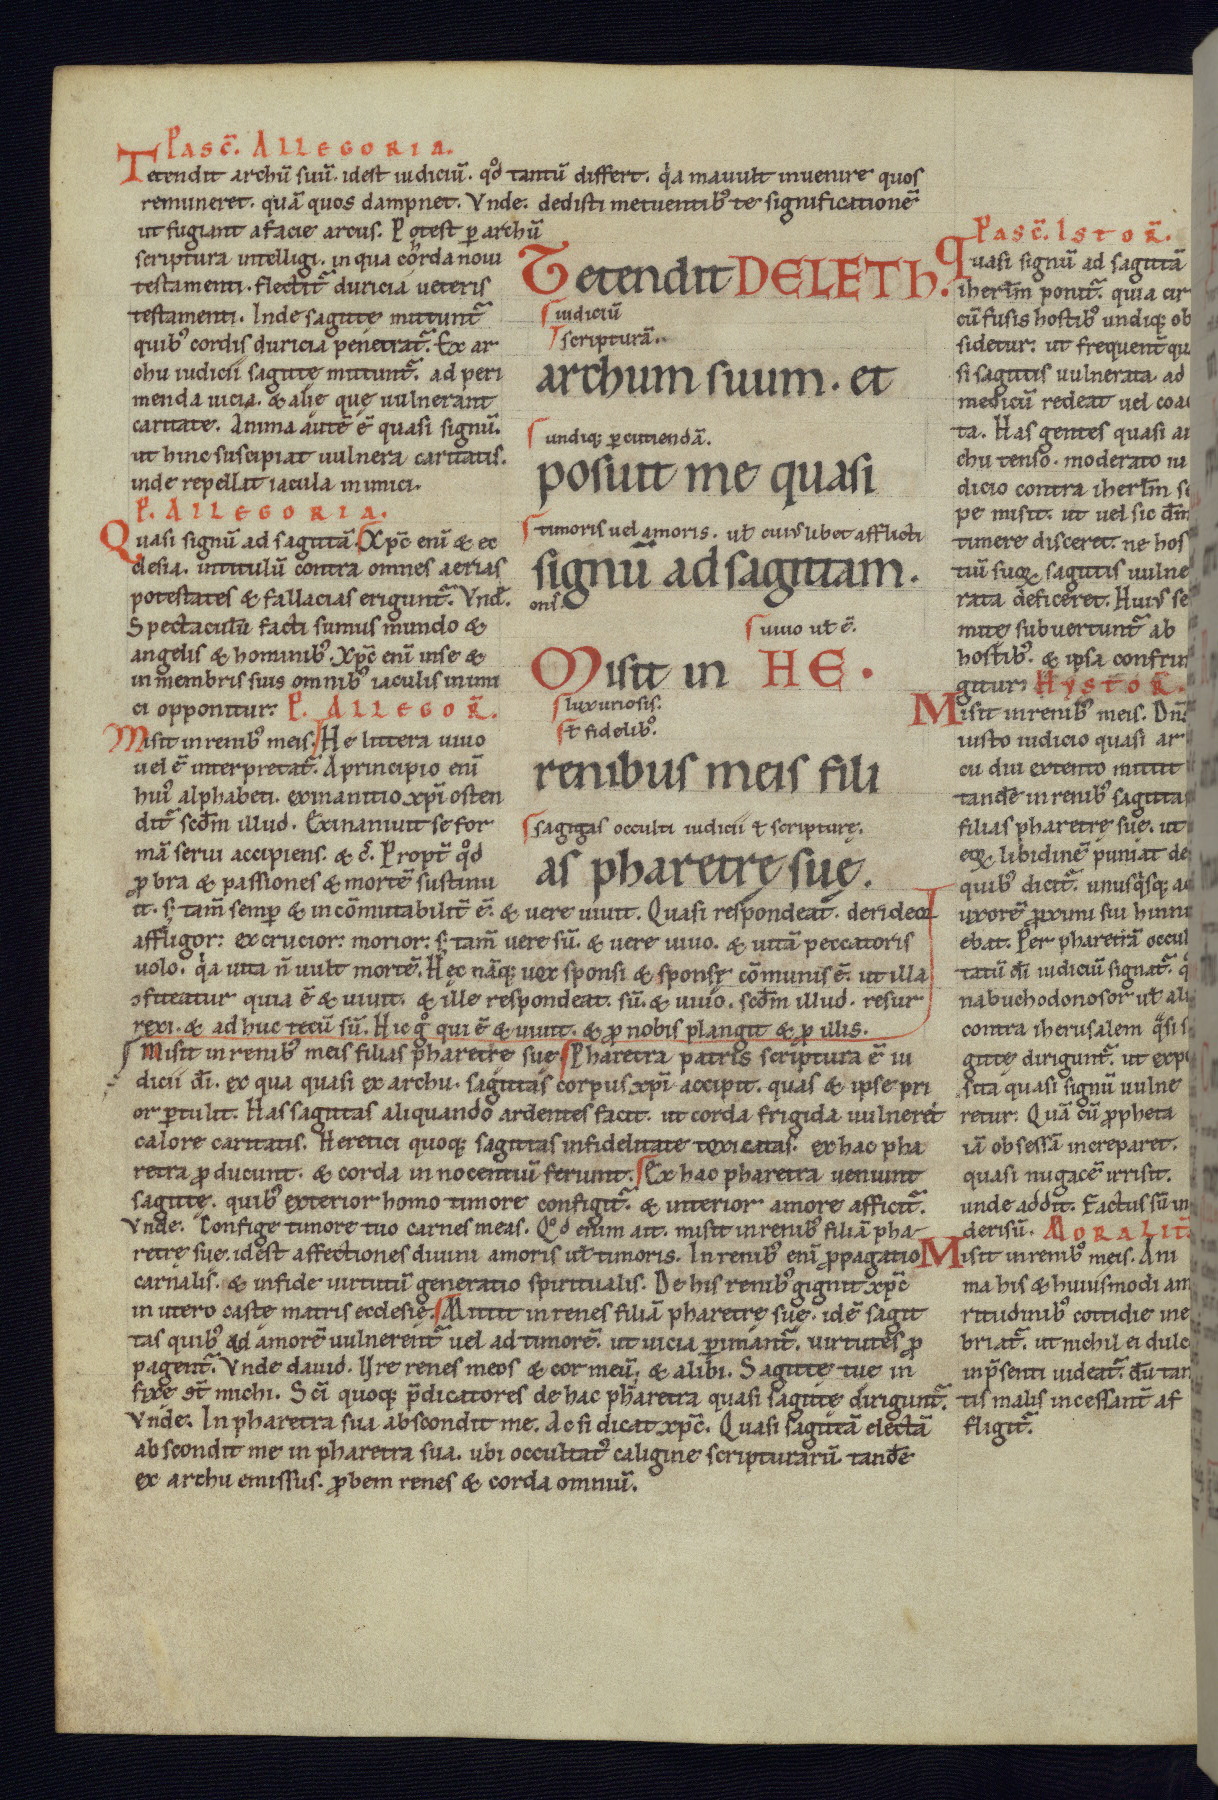 Pasc̄. Allegoria.
Tetendit archū suū. idest iudiciū. qd̊ tantū differt. qͣa mauult inuenire quos
remuneret. quā quos dampnet. Vnde. dedisti metuentibꝰ te significationē
ut fugiant a facie arcus. Potest ꝑ archū
scriptura intelligi. in qua chorda noui
testamenti. flectit᷑ duricia ueteris
testamenti. Inde sagitte mittunt᷑
quibꝰ cordis duricia penetrat᷑. Ex ar
chu iudicii sagittę mittunt᷑. ad peri
menda uicia. & alię quę uulnerant
caritate. Anima autē ē quasi signū.
ut hinc suscipiat uulnera caritatis.
inde repellat iacula inimici.
P. Allegoria.
Quasi signū ad sagittā. Xp̄c enī & ec
clesia. intitulū contra omnes aerias
potestates & fallacias erigunt᷑. Vnd̄.
Spectaculū facti sumus mundo &
angelis & hominibꝰ. Xp̄c enī in se &
in membris suis omnibꝰ iaculis inimi
ci opponitur. P. Allegor̄.
Misit in renibꝰ meis. He littera uiuo
uel ē interpretat᷑. A principio enī
huiꝰ alphabeti. exinanitio xp̄i osten
dit᷑ scd̄m illud. Exinaniuit se for
mā serui accipiens. & c̄. Propt̄ qd̊
ꝓbra & passiones & mortē sustinu
it. s; tam̄ semꝑ & incōmutabilit̄ ē. & uere uiuit. Quasi respondeat. derideor
affligor: excrucior: morior: s; tam̄ uere sū. & uere uiuo. & uitā peccatoris
uolo. qͣa uita n̄ uult mortē. Hęc nāq; uox sponsi & sponsę cōmunis ē. ut illa
ɔfiteatur quia ē & uiuit. & ille respondeat. sū. & uiuo. scd̄m illud. resur
rexi. & ad huc tecū sū. Hic gͦ qui ē & uiuit. & ꝓ nobis plangit & ꝓ illis.
Misit in renibꝰ meis filias pharetrę suę. Pharetra patris scriptura ē iu
dicii dī. ex qua quasi ex archu. sagittas corpus xp̄i accipit. quas & ipse pri
or ꝑtulit. Has sagittas aliquando ardentes facit. ut corda frigida uulneret
calore caritatis. Heretici quoq; sagittas infidelitate toxicatas. ex hac pha
retra ꝓducunt. & corda innocentiū feriunt. Ex hac pharetra ueniunt
sagittę. quibꝰ exterior homo timore configit᷑. & interior amore afficit᷑.
Vnde. Confige timore tuo carnes meas. Qd̊ enim ait. misit in renibꝰ filiā pha-
retrę suę. idest affectiones diuini amoris ul̄ timoris. In renibꝰ enī ꝓpagatio
carnalis. & in fide uirtutū generatio spiritualis. De his renibꝰ gignit xp̄c
in utero castę matris ecclesię. Mittit in renes filiā pharetrę suę. idē sagit
tas quibꝰ ad amorē uulnerent᷑ uel ad timorē. ut uicia ꝑimant᷑. uirtutes ꝓ
pagent᷑. Vnde dauid. Vre renes meos & cor meū. & alibi. Sagittę tuę in
fixę st̄ michi. Sc̄i quoq; p̄dicatores de hac pharetra quasi sagittę dirigunt᷑.
Vnde. In pharetra sua abscondit me. Ac si dicat xp̄c. Quasi sagittā electā
abscondit me in pharetra sua. ubi occultatꝰ caligine scripturarū tandē
ex archu emissus. ꝓbem renes & corda omniū.
Tetendit DELETH.
iudiciū
scripturā.
archum suum. et
undiq; ꝑcutiendā.
posuit me quasi
timoris uel amoris. ul̄ cuiuslibet afflicti
signū ad sagittam.
onis.
uiuo ul̄ ē.
Misit in HE.
luxuriosis.
st̄ fidelibꝰ.
renibus meis fili
sagittas occulti iudicii & scripturę.
as pharetrę suę.
Pasc̄. Istor̄.
Quasi signū ad sagittā
iherl̄m ponit᷑. quia cir
cūfusis hostibꝰ undiq; ob
sidetur: ut frequent̄ qu
si sagittis uulnerata. ad
medicū redeat uel coac
ta. Has gentes quasi ar
chu tenso. moderato iu
dicio contra iherl̄m sę
pe misit. ut uel sic dm̄
timere disceret. ne hos
tiū suoꝝ sagittis uulne
rata deficeret. Huius se
mitę subuertunt᷑ ab
hostibꝰ. & ipsa confrin
gitur. Hystor̄.
Misit in renibꝰ meis. Dn̄s
iusto iudicio quasi ar
cu diu extento mittit
tandē in renibꝰ sagittas
filias pharetrę suę. ut
eoꝝ libidinē puniat de
quibꝰ dicit᷑. unusqͥsq; ad
uxorē ꝓximi sui hinni
ebat. Per pharetrā occul
tatū dī iudiciū signat᷑. qͦ
nabuchodonosor ul̄ alii
contra iherusalem qͣsi s
gittę dirigunt᷑. ut expo
sita quasi signū uulne
retur. Quā cū ꝓpheta
iā obsessā increparet.
quasi nugacē irrisit.
unde addit. Factus sū in
derisū. Moralit̄
Misit in renibꝰ meis. Ani
ma his & huiusmodi am
ritudinibꝰ cottidie ine
briat᷑. ut nichil ei dulce
in p̄senti uideat᷑. dū tan
tis malis incessant̄ af
fligit᷑.